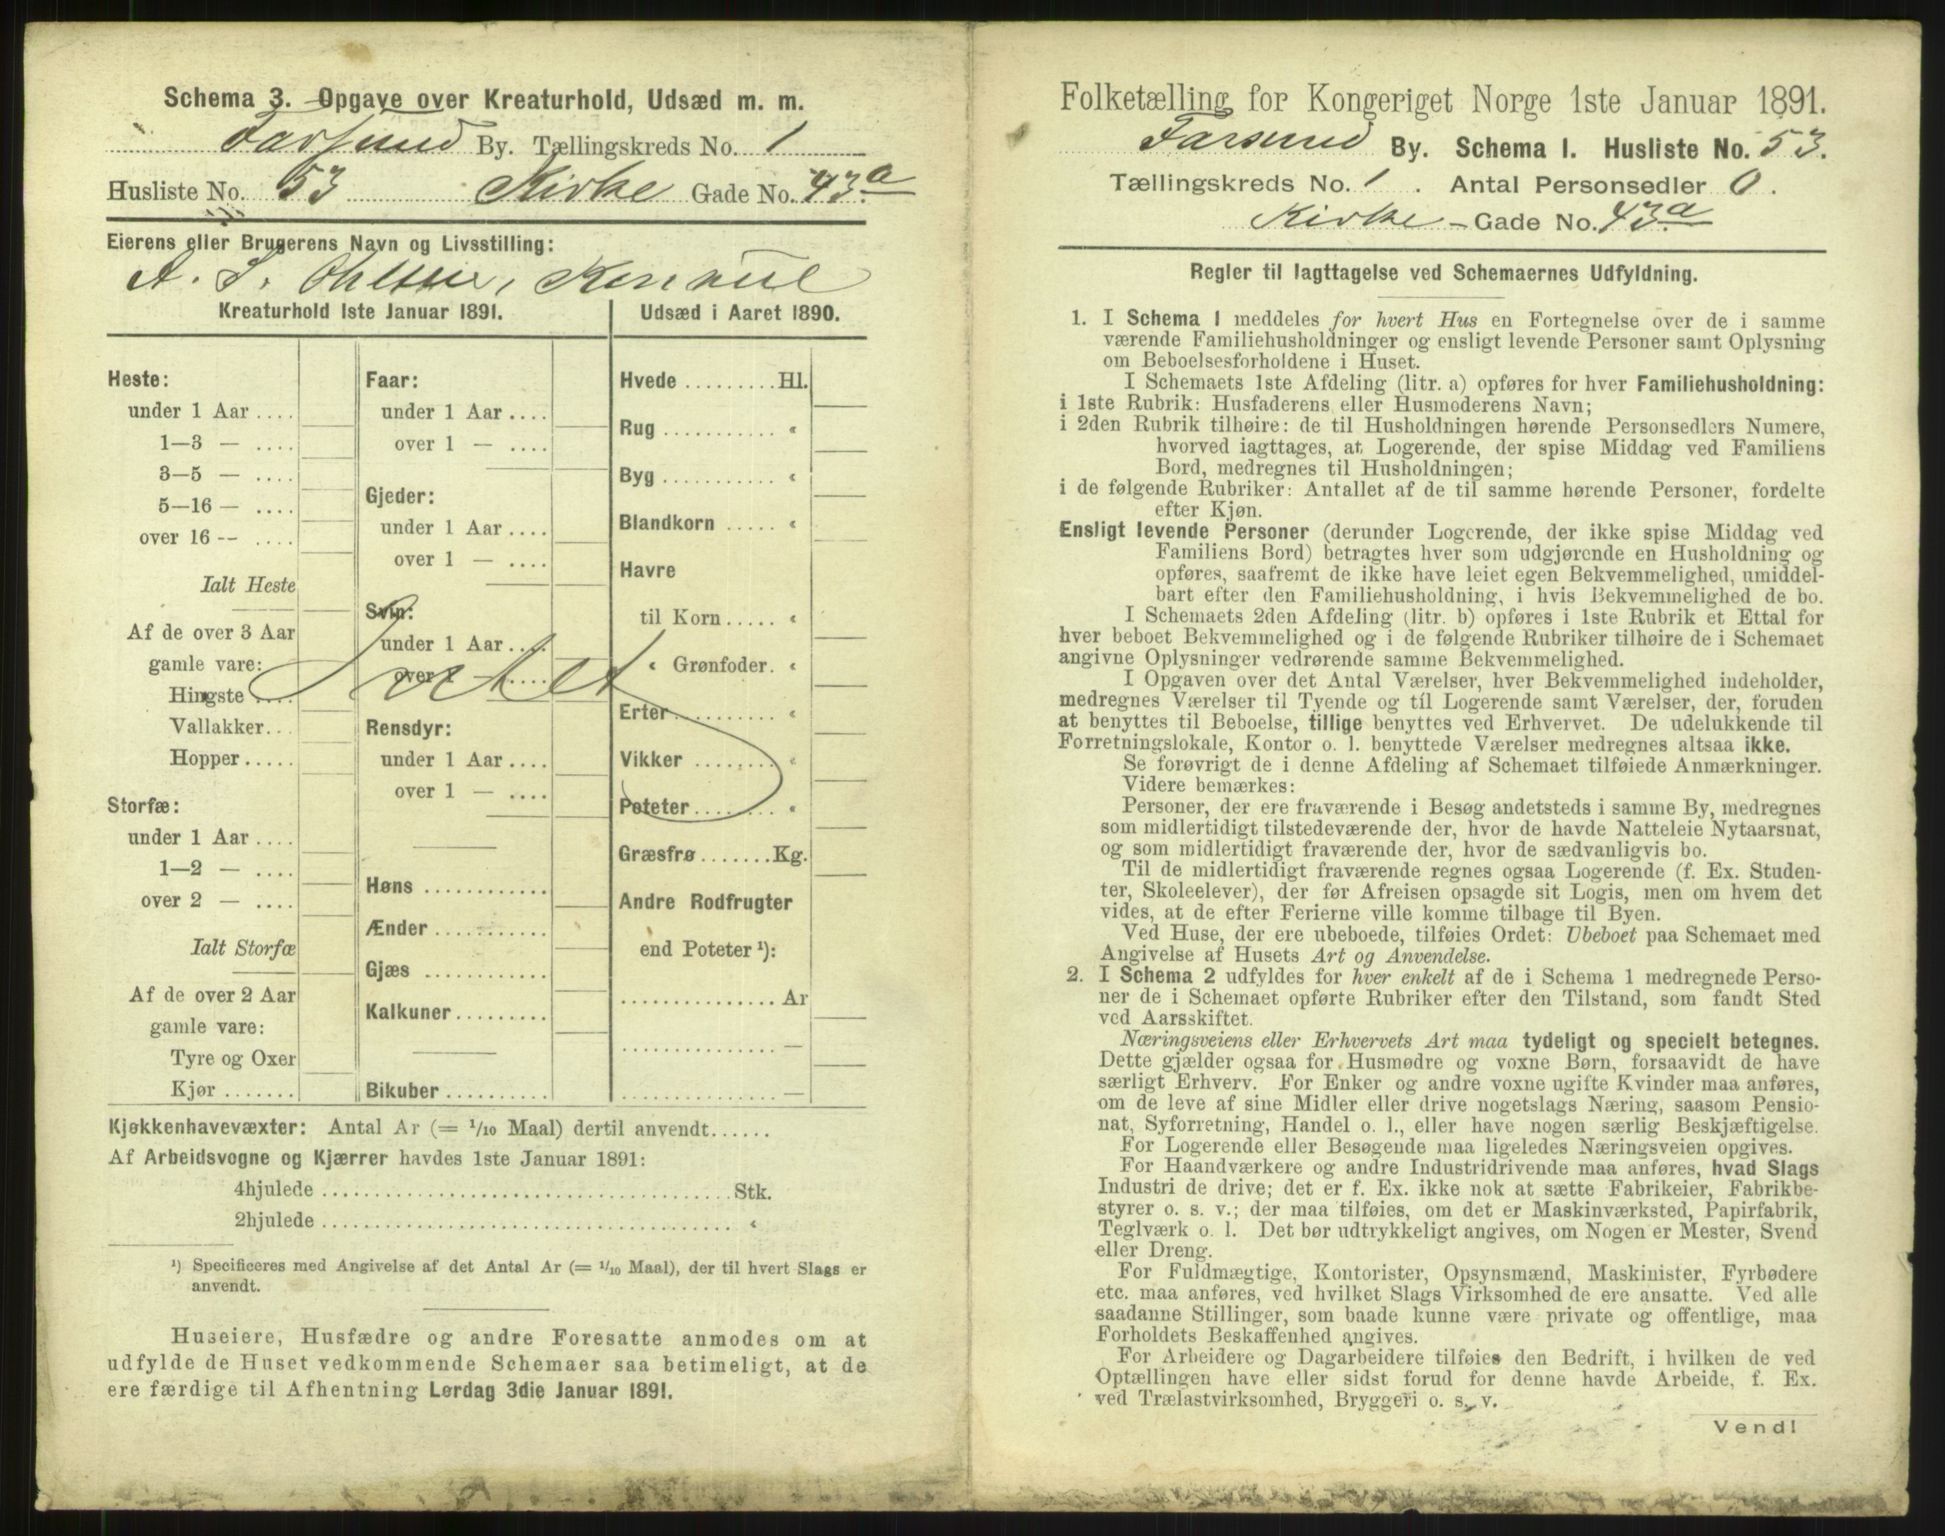 Schema 3. Opgave over Kreaturhold, Udsæd m. m.
Farsund By. Tællingskreds No. 1
Husliste No. 53 Kirke Gade No. 43a
Eierens eller Brugerens Navn og Livsstilling:
A. S. Konsul
Kreaturhold 1ste Januar 1891. Udsæd i Aaret 1890.
Heste:
under 1 Aar ....
1—3 — ....
3—5 — ....
5—16 — ....
over 16 -- ....
Ialt Heste
Af de over 3 Aar
gamle vare:
Hingste ....
Vallakker...
Hopper.....
Storfæ:
under 1 Aar....
1—2 — ....
over 2 — ....
Ialt Storfæ
Af de over 2 Aar
gamle vare:
Tyre og Oxer
Kjør .......
Faar:
under 1 Aar ....
over 1 — ....
Gjeder:
under 1 Aar....
over 1 — ....
Svin:
under 1 Aar....
over 1 — ....
Intet
Rensdyr:
under 1 Aar....
over 1 — ....
Høns ............
Ænder ...........
Gjæs ............
Kalkuner.........
Bikuber ..........
Hvede .........Hl.
Rug ........... «
Byg ........... «
Blandkorn ..... «
Havre
til Korn ..... «
« Grønfoder. «
Erter.......... «
Vikker ........ «
Poteter........ «
Græsfrø.......Kg.
Andre Rodfrugter
end Poteter ¹):
...............Ar
............... —
............... —
Kjøkkenhavevæxter: Antal Ar (= 1/10 Maal) dertil anvendt......
Af Arbeidsvogne og Kjærrer havdes 1ste Januar 1891:
4hjulede .....................................Stk.
2hjulede ..................................... «
¹) Specificeres med Angivelse af det Antal Ar (= 1/10 Maal), der til hvert Slags er
anvendt.
Huseiere, Husfædre og andre Foresatte anmodes om at
udfylde de Huset vedkommende Schemaer saa betimeligt, at de
ere færdige til Afhentning Lørdag 3die Januar 1891.
Folketælling for Kongeriget Norge 1ste Januar 1891.
Farsund By. Schema I. Husliste No. 53.
Tællingskreds No. 1. Antal Personsedler 0.
Kirke - Gade No. 43a
Regler til Iagttagelse ved Schemaernes Udfyldning.
1. I Schema 1 meddeles for hvert Hus en Fortegnelse over de i samme
værende Familiehusholdninger og ensligt levende Personer samt Oplysning
om Beboelsesforholdene i Huset.
I Schemaets 1ste Afdeling (litr. a) opføres for hver Familiehusholdning:
i 1ste Rubrik: Husfaderens eller Husmoderens Navn;
i 2den Rubrik tilhøire: de til Husholdningen hørende Personsedlers Numere,
hvorved iagttages, at Logerende, der spise Middag ved Familiens
Bord, medregnes til Husholdningen;
i de følgende Rubriker: Antallet af de til samme hørende Personer, fordelte
efter Kjøn.
Ensligt levende Personer (derunder Logerende, der ikke spise Middag ved
Familiens Bord) betragtes hver som udgjørende en Husholdning og
opføres, saafremt de ikke have leiet egen Bekvemmelighed, umiddel-
bart efter den Familiehusholdning, i hvis Bekvemmelighed de bo.
I Schemaets 2den Afdeling (litr. b) opføres i 1ste Rubrik et Ettal for
hver beboet Bekvemmelighed og i de følgende Rubriker tilhøire de i Schemaet
angivne Oplysninger vedrørende samme Bekvemmelighed.
I Opgaven over det Antal Værelser, hver Bekvemmelighed indeholder,
medregnes Værelser til Tyende og til Logerende samt Værelser, der, foruden
at benyttes til Beboelse, tillige benyttes ved Erhvervet. De udelukkende til
Forretningslokale, Kontor o. l. benyttede Værelser medregnes altsaa ikke.
Se forøvrigt de i denne Afdeling af Schemaet tilføiede Anmærkninger.
Videre bemærkes:
Personer, der ere fraværende i Besøg andetsteds i samme By, medregnes
som midlertidigt tilstedeværende der, hvor de havde Natteleie Nytaarsnat,
og som midlertidigt fraværende der, hvor de sædvanligvis bo.
Til de midlertidigt fraværende regnes ogsaa Logerende (f. Ex. Studen-
ter, Skoleelever), der før Afreisen opsagde sit Logis, men om hvem det
vides, at de efter Ferierne ville komme tilbage til Byen.
Ved Huse, der ere ubeboede, tilføies Ordet: Ubeboet paa Schemaet med
Angivelse af Husets Art og Anvendelse.
2. I Schema 2 udfyldes for hver enkelt af de i Schema 1 medregnede Perso-
ner de i Schemaet opførte Rubriker efter den Tilstand, som fandt Sted
ved Aarsskiftet.
Næringsveiens eller Erhvervets Art maa tydeligt og specielt betegnes.
Dette gjælder ogsaa for Husmødre og voxne Børn, forsaavidt de have
særligt Erhverv. For Enker og andre voxne ugifte Kvinder maa anføres,
om de leve af sine Midler eller drive nogetslags Næring, saasom Pensio-
nat, Syforretning, Handel o. l., eller have nogen særlig Beskjæftigelse.
For Logerende eller Besøgende maa ligeledes Næringsveien opgives.
For Haandværkere og andre Industridrivende maa anføres, hvad Slags
Industri de drive; det er f. Ex. ikke nok at sætte Fabrikeier, Fabrikbe-
styrer o. s. v.; der maa tilføies, om det er Maskinværksted, Papirfabrik,
Teglværk o. l. Det bør udtrykkeligt angives, om Nogen er Mester, Svend
eller Dreng.
For Fuldmægtige, Kontorister, Opsynsmænd, Maskinister, Fyrbødere
etc. maa anføres, ved hvilket Slags Virksomhed de ere ansatte. Ved alle
saadanne Stillinger, som baade kunne være private og offentlige, maa
Forholdets Beskaffenhed angives.
For Arbeidere og Dagarbeidere tilføies den Bedrift, i hvilken de ved
Optællingen have eller sidst forud for denne havde Arbeide, f. Ex.
ved Trælastvirksomhed, Bryggeri o. s. v.
Vend!